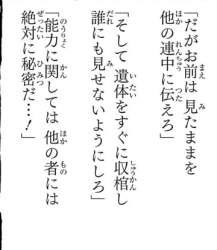 「だがお前は 見たままを
他の連中に伝えろ」
「そして 遺体をすぐに収棺し
誰にも見せないようにしろ」
「能力に関しては 他の者には
絶対に秘密だ…!」